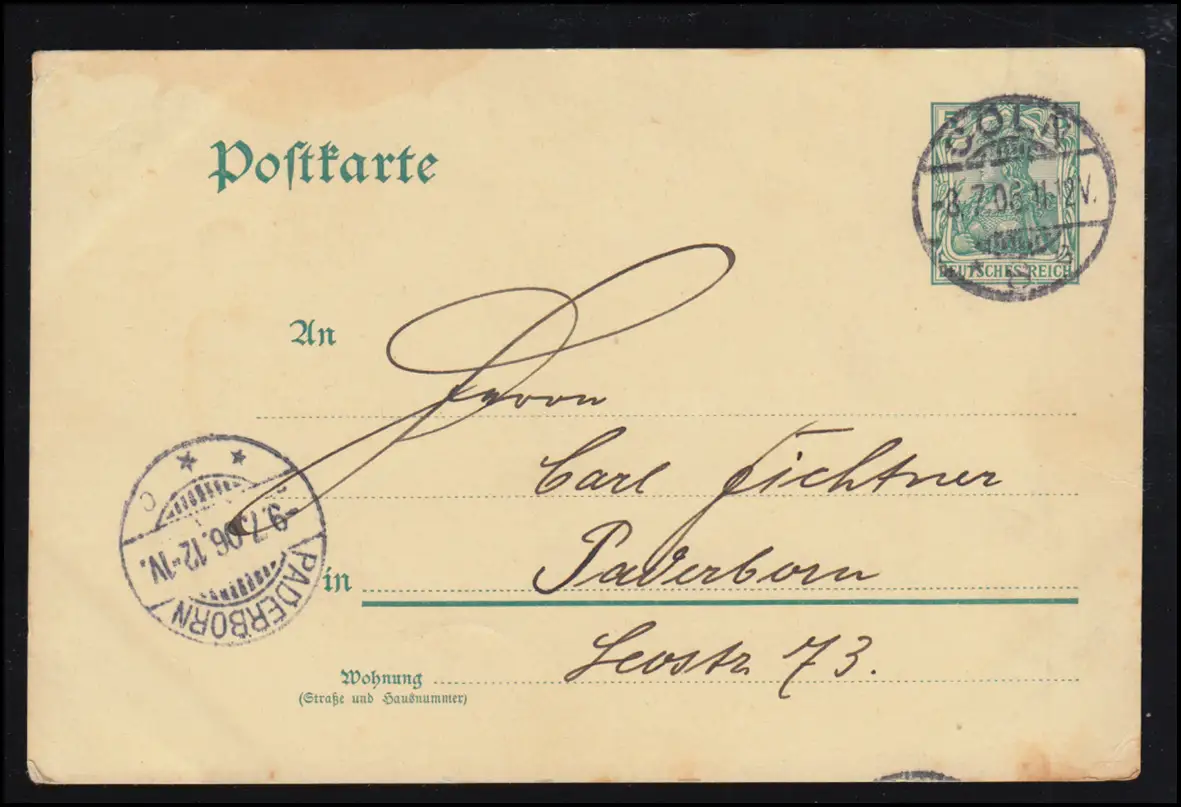 Postkarte
5
CÖLN
-8.7.06.11-12V.
* 8
DEUTSCHES REICH
An
Herrn
Carl Fichtner
in Paderborn
Leostr 73.
Wohnung
(Straße und Hausnummer)
* *
c
-9.7.06.12-1V.
PADERBORN